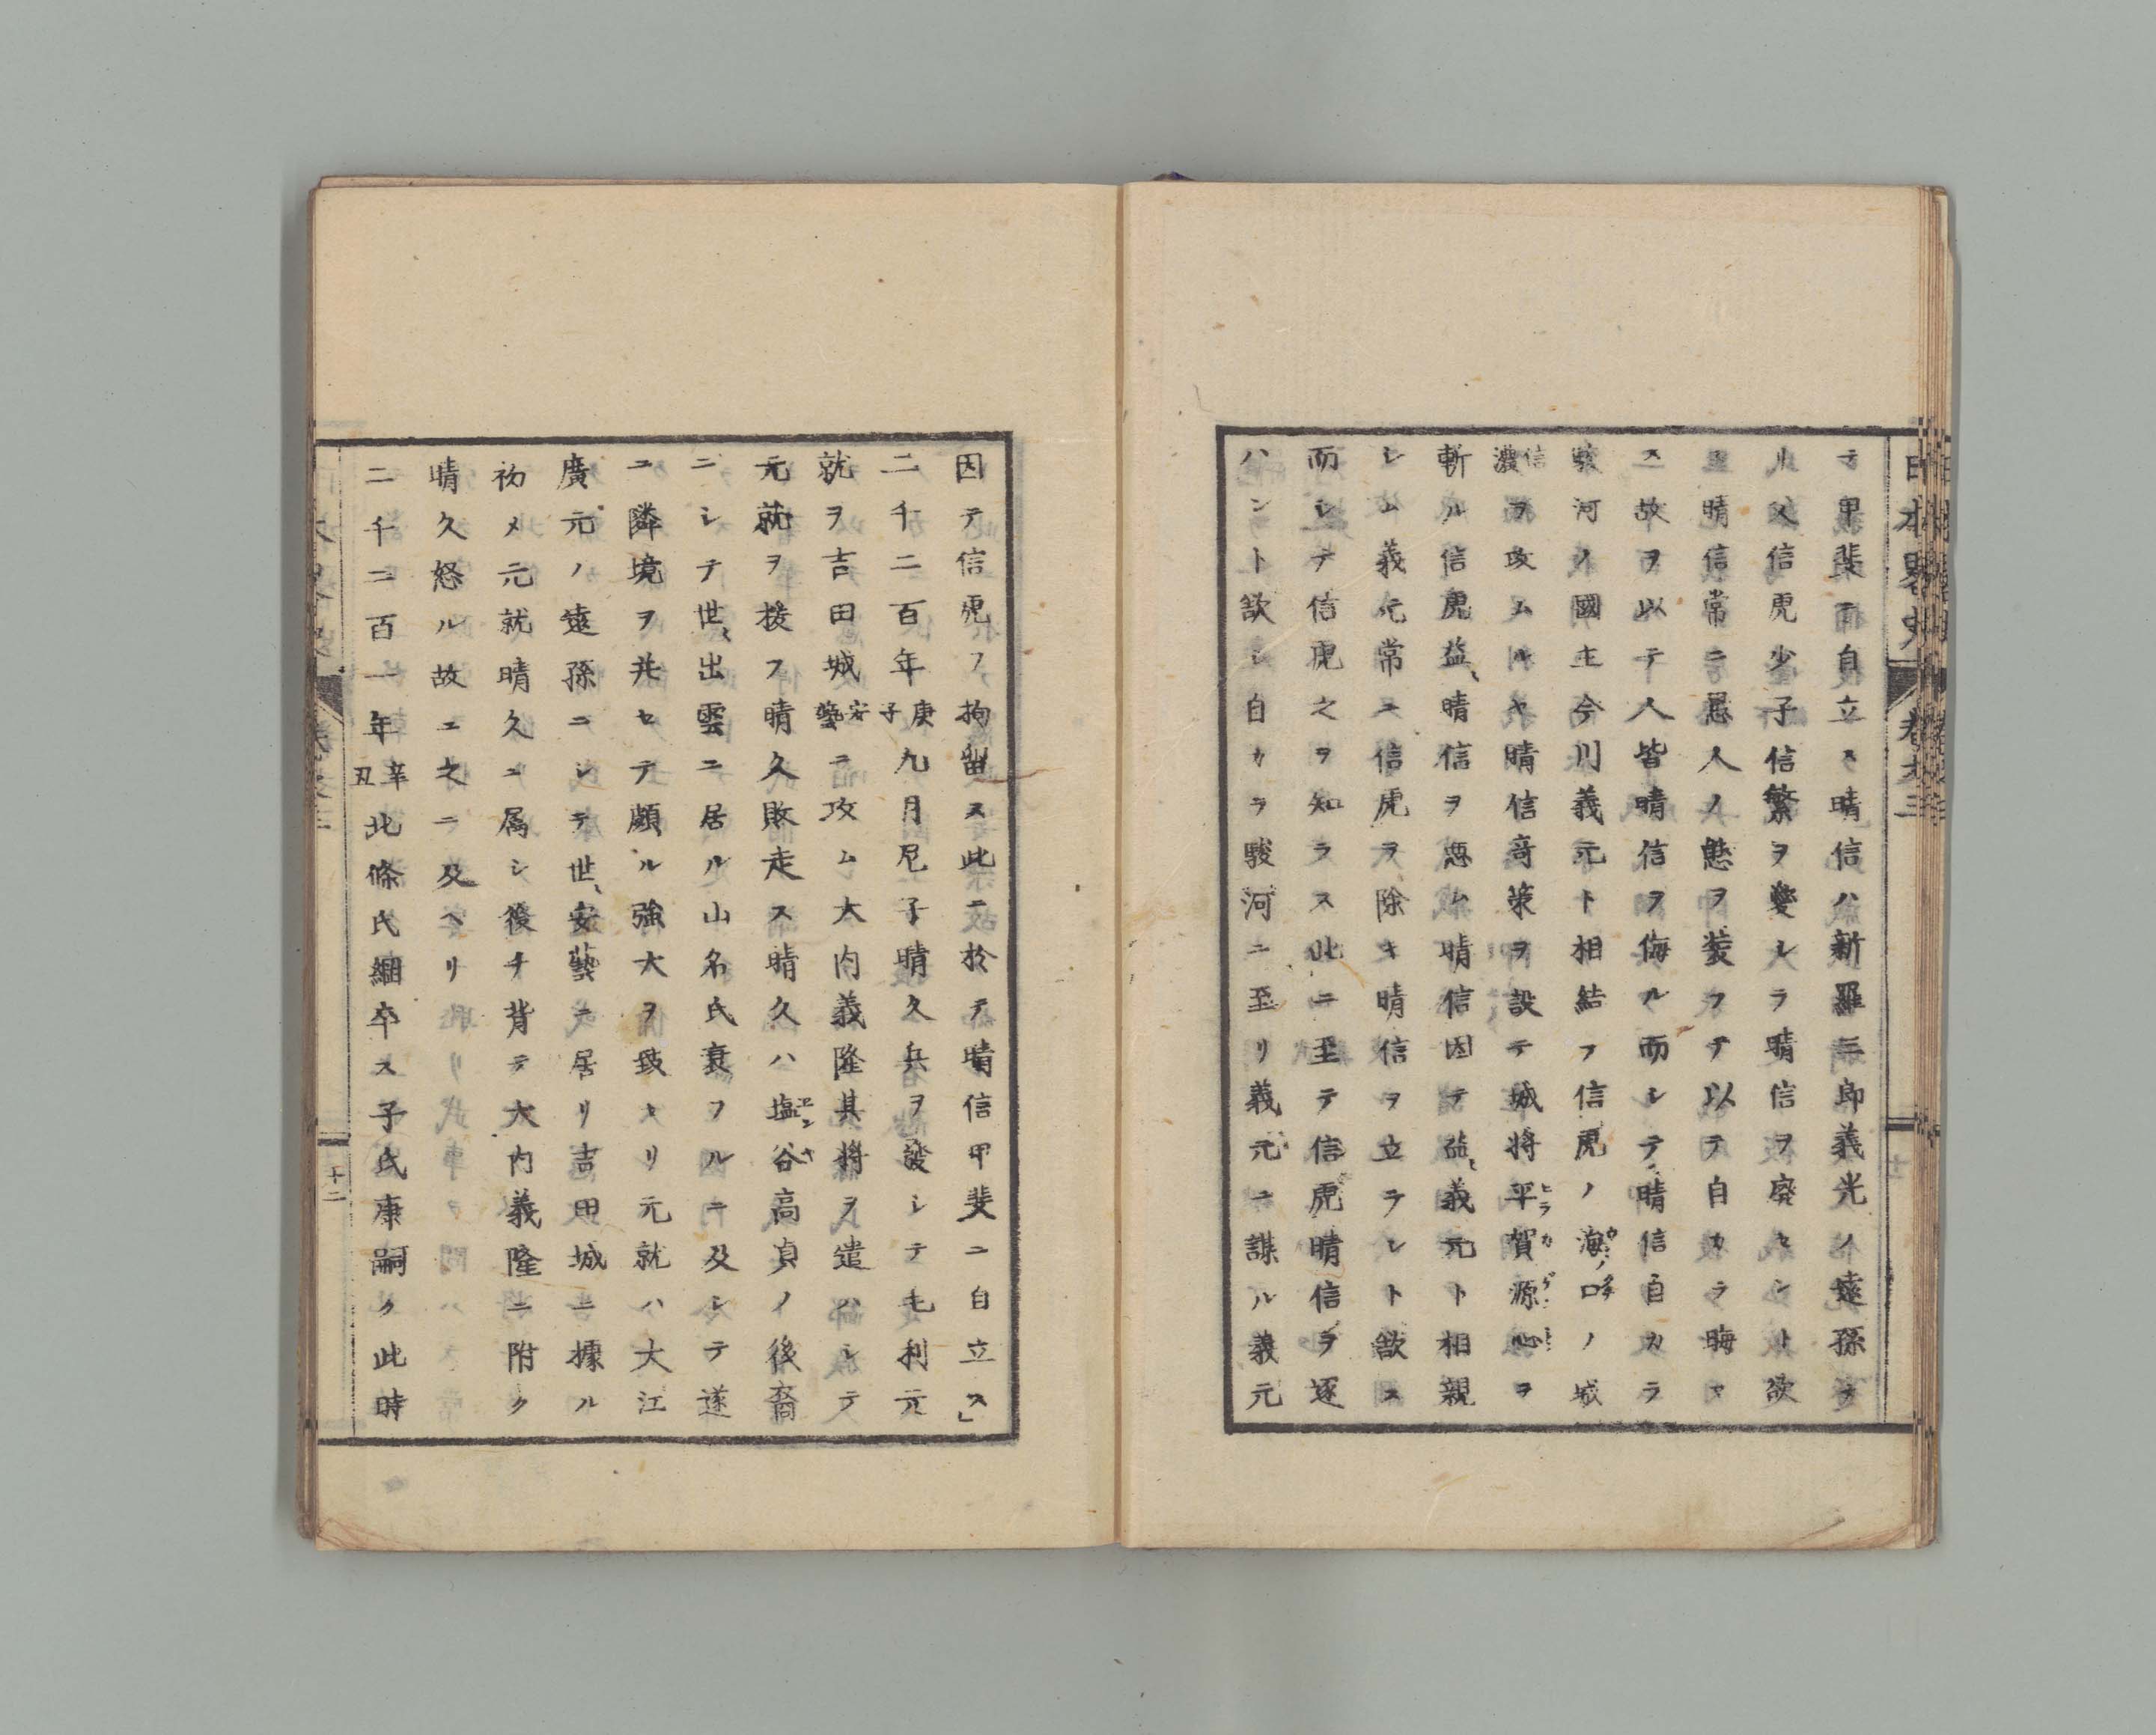 日本畧史 卷之三
テ甲斐ニ自立ス晴信ハ新羅三郎義光ノ遠孫ナ
リ父信虎少子信繁ヲ愛シテ晴信ヲ廃セント欲
ス晴信常ニ愚人ノ態ヲ装フテ以テ自カラ晦マ
ス故ヲ以テ人皆晴信ヲ侮ル而シテ晴信自カラ
駿河ノ國主今川義元ト相結フ信虎ノ海ノ口ノ城
信濃ヲ攻ムルヤ晴信竒策ヲ設テ城将平賀源心ヲ
斬ル信虎益〻晴信ヲ悪ム晴信因テ益〻義元ト相親
シム義元常ニ信虎ヲ除キ晴信ヲ立ラント欲ス
而シテ信虎之ヲ知ラス此ニ至テ信虎晴信ヲ逐
ハント欲シ自カラ駿河ニ至リ義元ニ謀ル義元
因テ信虎ヲ拘留ス此ニ於テ晴信甲斐ニ自立ス」
二千二百年庚子九月尼子晴久兵ヲ發シテ毛利元
就ヲ吉田城安藝ニ攻ム大内義隆其将ヲ遣ハシテ
元就ヲ援フ晴久敗走ス晴久ハ塩谷高貞ノ後裔
ニシテ世〻出雲ニ居ル山名氏衰フルニ及シテ遂
ニ隣境ヲ并セテ頗ル強大ヲ致セリ元就ハ大江
廣元ノ遠孫ニシテ世〻安藝ニ居リ吉田城ニ據ル
初メ元就晴久ニ属シ後チ背テ大内義隆ニ附ク
晴久怒ル故ニ之ニ及ヘリ
二千二百一年辛丑北條氏綱卒ス子氏康嗣ク此時
十二